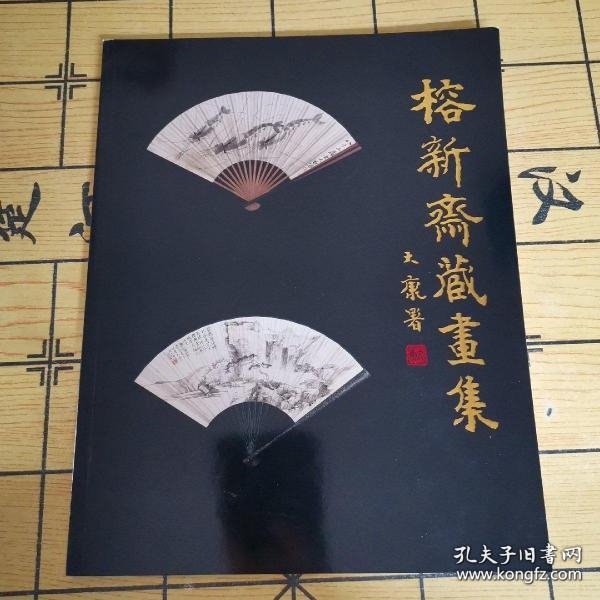 榕新斋藏畫集
大康署
楚河
汉
孔夫子旧书网
www.kongfz.com